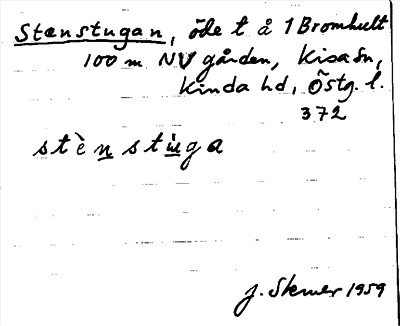 Stenstugan, öde t å 1 Bromhult
100 m NV gården, Kisa sn,
Kinda hd, Östg. l.
372
stènstu̇ga
J. Skemer 1959